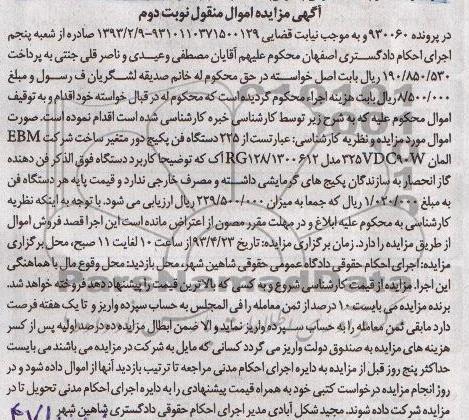 آگهی مزایده اموال منقول نوبت دوم
در پرونده ۹۳۰۰۶۰ و به موجب نیابت قضایی ۹۳۱۰۱۱۰۳۷۱۵۰۰۱۲۹-۱۳۹۳/۲/۹ صادره از شعبه پنجم
اجرای احکام دادگستری اصفهان محکوم علیهم آقایان مصطفی وعیدی و ناصر قلی جنتی به پرداخت
۱۹۰/۸۵۰/۵۳۰ ریال بابت اصل خواسته در حق محکوم له خانم صدیقه لشگریان ف رسول و مبلغ
۸/۵۰۰/۰۰۰ ریال بابت هزینه اجراء محکوم گردیده است که محکوم له در قبال خواسته خود اقدام و به توقیف
اموال محکوم علیه که به شرح زیر توسط کارشناسی خبره کارشناسی شده است اقدام نموده است. صورت
اموال مورد مزایده و نظریه کارشناسی: عبارتست از ۲۲۵ دستگاه فن پکیج دور متغیر ساخت شرکت EBM
المان ۳۲۵VDC۹۰W مدل RG۱۲۸/۱۳۰۰۶۱۲ آک که توضیحا کاربرد دستگاه فوق الذکر فن دهنده
گاز انحصار به سازندگان پکیج های گرمایشی داشته و مصرف خارجی ندارد و قیمت پایه هر دستگاه فن
به مبلغ ۱/۰۲۰/۰۰۰ ریال که جمعا به میزان ۲۲۹/۵۰۰/۰۰۰ ریال ارزیابی می شود. با توجه به اینکه نظریه
کارشناسی به محکوم علیه ابلاغ و در مهلت مقرر مصون از اعتراض مانده است این اجرا قصد فروش اموال
از طریق مزایده را دارد. زمان برگزاری مزایده: تاریخ ۹۳/۴/۲۳ از ساعت ۱۰ لغایت ۱۱ صبح، محل برگزاری
مزایده: اجرای احکام حقوقی دادگاه عمومی حقوقی شاهین شهر، محل بازدید: محل وقوع مال با هماهنگی
این اجرا. مزایده از قیمت کارشناسی شروع و به کسی که بالاترین قیمت را پیشنهاد دهد فروخته خواهد شد.
برنده مزایده می بایست ۱۰ درصد از ثمن معامله را فی المجلس به حساب سپرده واریز و تا یک هفته فرصت
دارد مابقی ثمن معامله را به حساب سپرده واریز نماید و الا ضمن ابطال مزایده ده درصد اولیه پس از کسر
هزینه های مزایده به صندوق دولت واریز می گردد کسانی که مایل به شرکت در مزایده می باشند می بایست
حداکثر پنج روز قبل از مزایده به دایره اجرای احکام مدنی مراجعه تا ترتیب بازدید آنها از اموال داده شود و در
روز انجام مزایده درخواست کتبی خود به همراه قیمت پیشنهادی را به دایره اجرای احکام مدنی تحویل تا در
مزایده شرکت داده شوند. مجید شکل آبادی مدیر اجرای احکام حقوقی دادگستری شاهین شهر